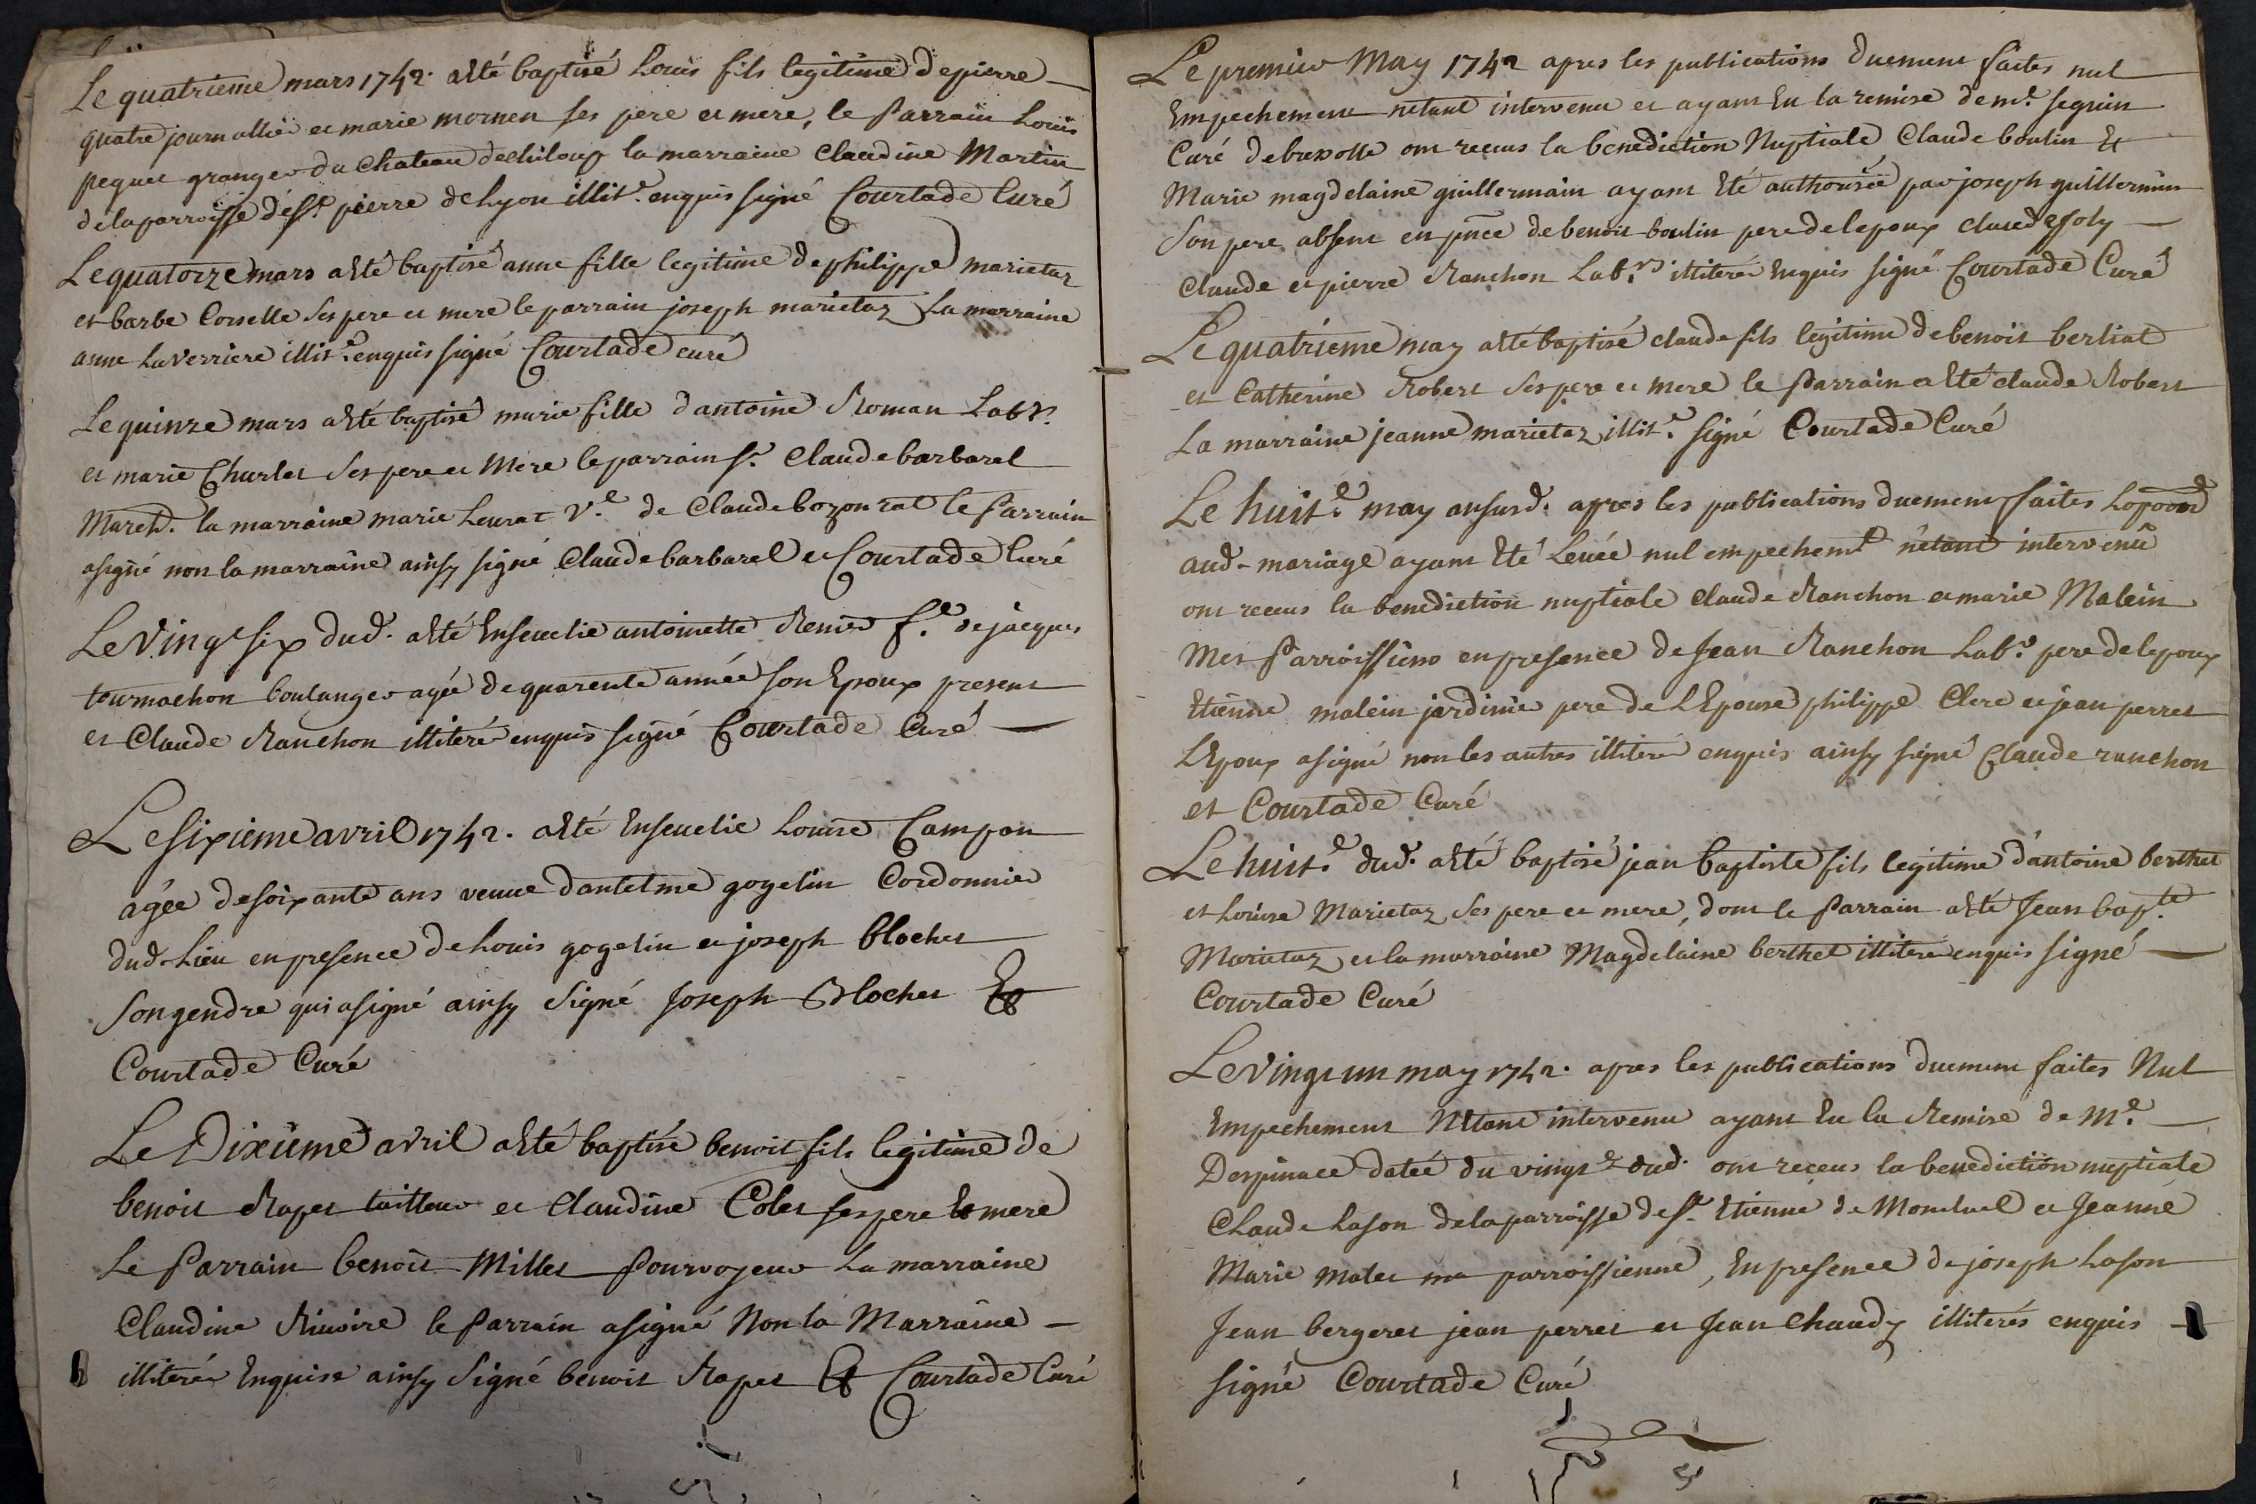 Le quatrieme mars 1742. a Eté baptisé Louis fils legitime de pierre
quatre journallier et marie mornen ses pere et mere, le Parrain Louis
pequet granger du Chateau la marraine Claudine Martin
de la parroisse de st. pierre de Lyon illit.e enquis signé Courtade Curé
Le quatorze mars a Eté baptisé anne fille legitime de philippe marietaz
et barbe Corselle ses pere et mere le parrain joseph marietaz La marraine
anne Laverriere illit.e enquis signé Courtade curé
Le quinze mars a Eté baptisé marie fille d'antoine Roman Labr.
et marie Churlet ses pere et Mere le parrain sr. Claude barbarel
March.d la marraine marie Leurat V.e de Claude bozonrat le Parrain
a signé non la marraine ainsy signé Claude barbarel et Courtade Curé
Le Vingt six dud. a Eté Ensevelie antoinette Renier f.e de jacques
tournachon boulanger agée de quarente année son Epoux present
et Claude Ranchon illiteré enquis signé Courtade Curé
Le sixieme avril 1742. a Eté Ensevelie Louise Campan
agée de soixante ans veuve d'antelme gogelin Cordonnier
dud. Lieu en presence de Louis gogelin et joseph blochet
son gendre qui a signé ainsy Signé Joseph Blochet Et
Courtade Curé
Le Dixiéme avril a Eté baptisé benoit fils legitime de
benoit Rapet tailleur et Claudine Colet ses pere Et mere
Le Parrain benoit Millet Pourvoyeur La marraine
Claudine Rivoire le Parrain a signé Non la Marraine
illiterée Enquise ainsy Signé benoit Rapet Et Courtade Curé
Le premier May 1742 apres les publications duement faites nul
Empechement n'etant intervenu et ayant Eu la remise de mr. seguin
Curé de bressolle ont recus la benediction Nuptiale Claude boulin Et
Marie magdelaine guillermain ayant Eté authorisée par joseph guillermin
Son pere absent en pnce de benoit boulin pere de lepoux claude joly
Claude et pierre Ranchon Labrs. illiterés Enquis signé Courtade Curé
Le quatrieme may a Eté baptisé claude fils legitime de benoit berliat
et Catherine Robert ses pere et mere le Parrain a Eté claude Robert
La marraine jeanne marietaz illit.e signé Courtade Curé
Le huit.e may apres les publications duement faites
aud. mariage ayant Eté Levée nul empechem.t n'etant intervenû
ont recus la benediction nuptiale Claude Ranchon et marie Malein
Mes Parroissiens en presence de Jean Ranchon Labr. pere de lepoux
Etienne malein jardinier pere de L'Epouse philippe Clerc et jean perret
L'Epoux a signé non les autres illiteré enquis ainsy signé Claude ranchon
et Courtade Curé
Le huit.e dud. a Eté baptisé jean baptiste fils legitime d'antoine berthet
et Louise Marietaz ses pere et mere, dont le Parrain a Eté Jean bap.te
Marietaz et la marraine Magdelaine berthet illiteré enquis signé
Courtade Curé
Le vingt un may 1742. apres les publications duement faites Nul
Empechement N'Etant intervenu ayant Eu la Remise de Mr.
Despinace datée du vingt.e dud. ont recus la benediction nuptiale
Claude Lason de la parroisse de st. Etienne de Montluel et Jeanne
Marie malet ma parroissienne, En presence de joseph Lason
Jean bergeret jean perret et Jean Chaudy illiterés enquis
signé Courtade Curé